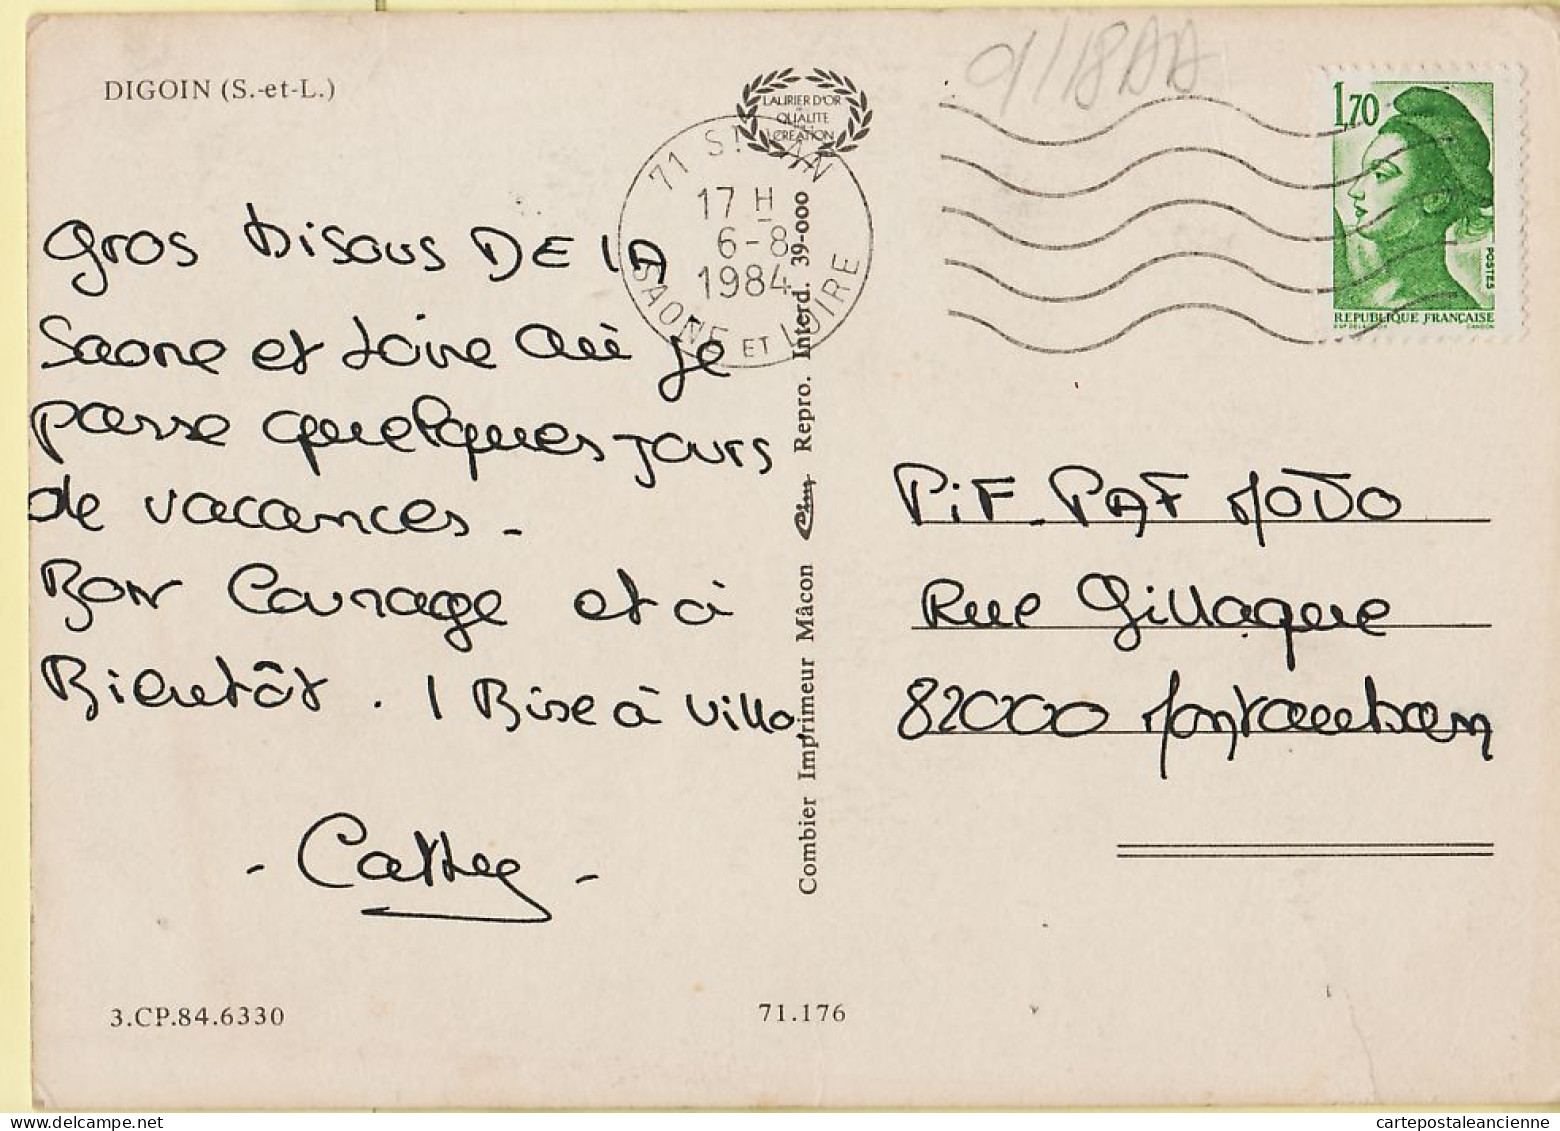 DIGOIN (S.-et-L.)
LAURIER D'OR
QUALITE
CREATION
17 H
6-8
1984
SAONE ET LOIRE
1,70
POSTES
REPUBLIQUE FRANÇAISE
Gros Bisous DE LA
Saone et Loire Où je
passe quelques jours
de vacances -
Bon Courage et à
Bientôt . 1 Bise à Villa.
- Cathy -
Combier Imprimeur Mâcon Cim Repro. Interd. 39-000
PiF. PAF MODO
Rue Gillaque
82000 Montauban
3.CP.84.6330
71.176
cartepostaleancienne